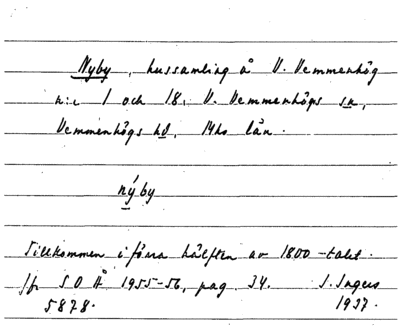 Nyby, hussamling å V. Vemmenhög
n:r 1 och 18, V. Vemmenhögs sn,
Vemmenhögs hd, Mhs län.
nýby
Tillkommen i förra hälften av 1800-talet.
Jfr SOÅ 1955-56, pag. 34. I. Ingers
5878. 1937.